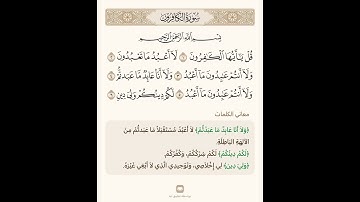 سُورَةُ الكَافِرُونَ
بِسْمِ اللَّهِ الرَّحْمَٰنِ الرَّحِيمِ
قُلْ يَا أَيُّهَا الْكَافِرُونَ ١ لَا أَعْبُدُ مَا تَعْبُدُونَ ٢
وَلَا أَنتُمْ عَابِدُونَ مَا أَعْبُدُ ٣ وَلَا أَنَا عَابِدٌ مَّا عَبَدتُّمْ ٤
وَلَا أَنتُمْ عَابِدُونَ مَا أَعْبُدُ ٥ لَكُمْ دِينُكُمْ وَلِيَ دِينِ ٦
معاني الكلمات
﴿وَلَا أَنَا عَابِدٌ مَا عَبَدْتُمْ﴾ لَا أَعْبُدُ مُسْتَقْبَلًا مَا عَبَدْتُمْ مِنَ
الآلِهَةِ البَاطِلَةِ.
﴿لَكُمْ دِينُكُمْ﴾ لَكُمْ شِرْكُكُمْ، وَكُفْرُكُمْ.
﴿وَلِيَ دِينِ﴾ لِي إِخْلَاصِي، وَتَوْحِيدِي الَّذِي لَا أَبْغِي غَيْرَهُ.